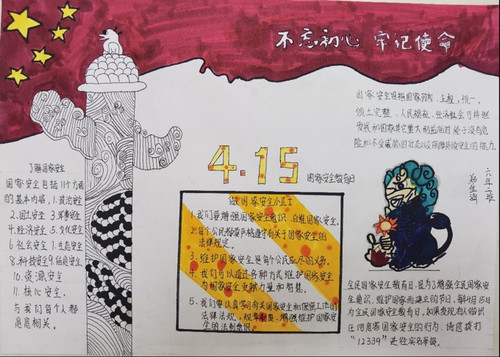 不忘初心 牢记使命
4.15
国家安全教育日
了解国家安全
国家安全包括11个方面
的基本内容,1.政治安全
2.国土安全 3.军事安全
4.经济安全 5.文化安全
6.社会安全 7.生态安全
8.科技安全 9.信息安全
10.资源安全
11.核心安全,
与我们每个人都
息息相关。
做国家安全小卫士
1.我们要增强国家安全意识,自维国家安全。
2.每个公民都要严格遵守有关于国家安全的
法律规定。
3.维护国家安全是每个公民应尽的义务。
4.我们可以通过各种方式维护国家安全
为国家安全贡献力量和智慧。
5.我们要认真学习有关国家安全和保密工作的
法律法规,
增强维护国家安
全的法制意识
国家安全是指国家政权、主权、统一、
领土完整、人民福祉、经济社会可持续
发展和国家其它重大利益相对处于没有危
险和不受威胁的状态以及保障持续安全的能力
六年二班
全民国家安全教育日,是为了增强全民国家安
全意识,维护国家而建立的节日,每年4月15日
为全民国家安全教育日。如果发现有人做出
任何危害国家安全的行为,请您拨打
"12339"是给实名举报。